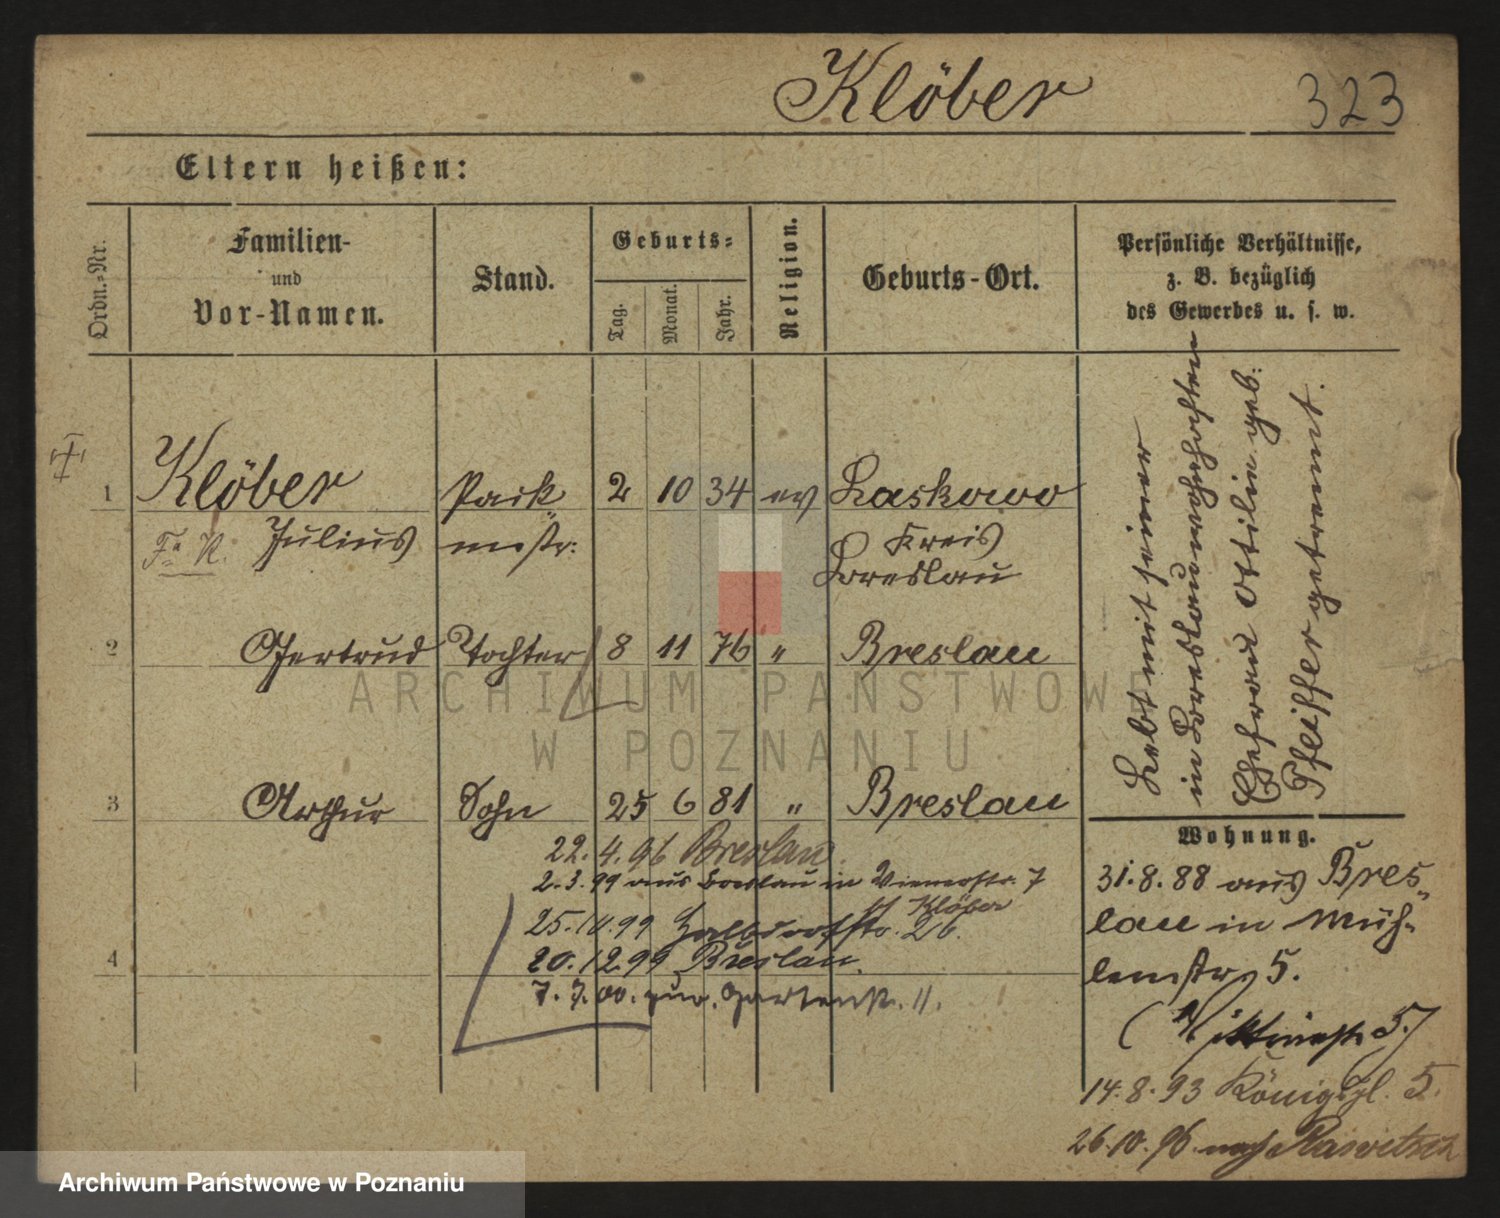 Klöber
323
Eltern heißen:
Ordn.-Nr.
Familien-
und
Vor-Namen.
Stand.
Geburts-
Tag.
Monat.
Jahr.
Religion.
Geburts-Ort.
Persönliche Verhältnisse,
z. B. bezüglich
des Gewerbes u. s. w.
1 Klöber Pack- 2 10 34 ev Laskowo
Julius mstr: Kreis
Breslau
2 Gertrud Tochter 8 11 76 " Breslau
3 Arthur Sohn 25 6 81 " Breslau
Lebt mit seiner
in Breslau wohnhaften
Ehefrau Ottilie geb:
Pfeiffer getrennt.
22.4.96 Breslau.
2.3.99 aus Breslau in Wienerstr. 7
bei Klöber
25.10.99 str. 26.
4
20.12.99 Breslau.
7.7.00. zur. Gartenstr. 11.
Wohnung.
31.8.88 aus Bres-
lau in Müh-
lenstr 5.
( 5.)
14.8.93 Königspl. 5.
26.10.96. nach Rawitsch
ARCHIWUM PAŃSTWOWE
W POZNANIU
Archiwum Państwowe w Poznaniu